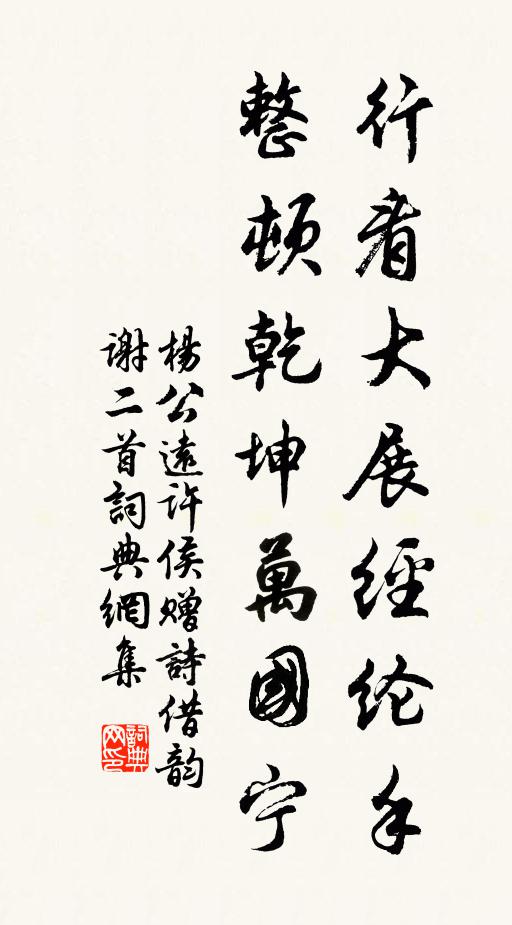 行看大展經纶手
整頓乾坤萬國宁
楊公遠許侯赠詩借韵
谢二首詞典網集
詞典网印